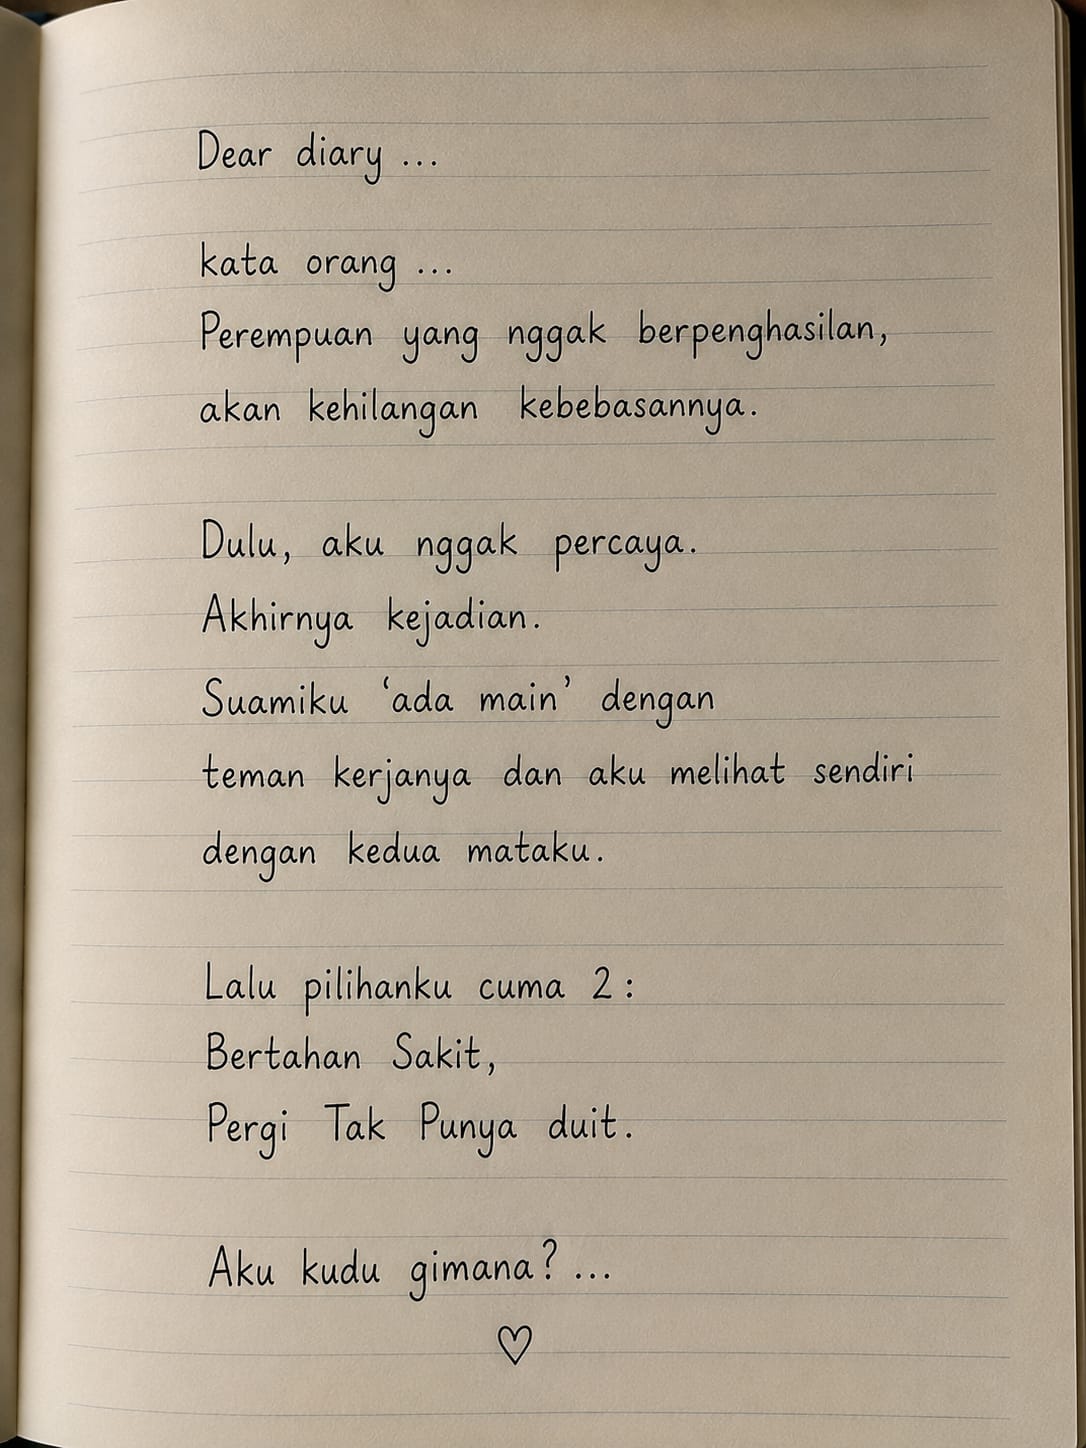 Dear diary ...
kata orang ...
Perempuan yang nggak berpenghasilan,
akan kehilangan kebebasannya.
Dulu, aku nggak percaya.
Akhirnya kejadian.
Suamiku ‘ada main’ dengan
teman kerjanya dan aku melihat sendiri
dengan kedua mataku.
Lalu pilihanku cuma 2 :
Bertahan Sakit,
Pergi Tak Punya duit.
Aku kudu gimana? ...
♡